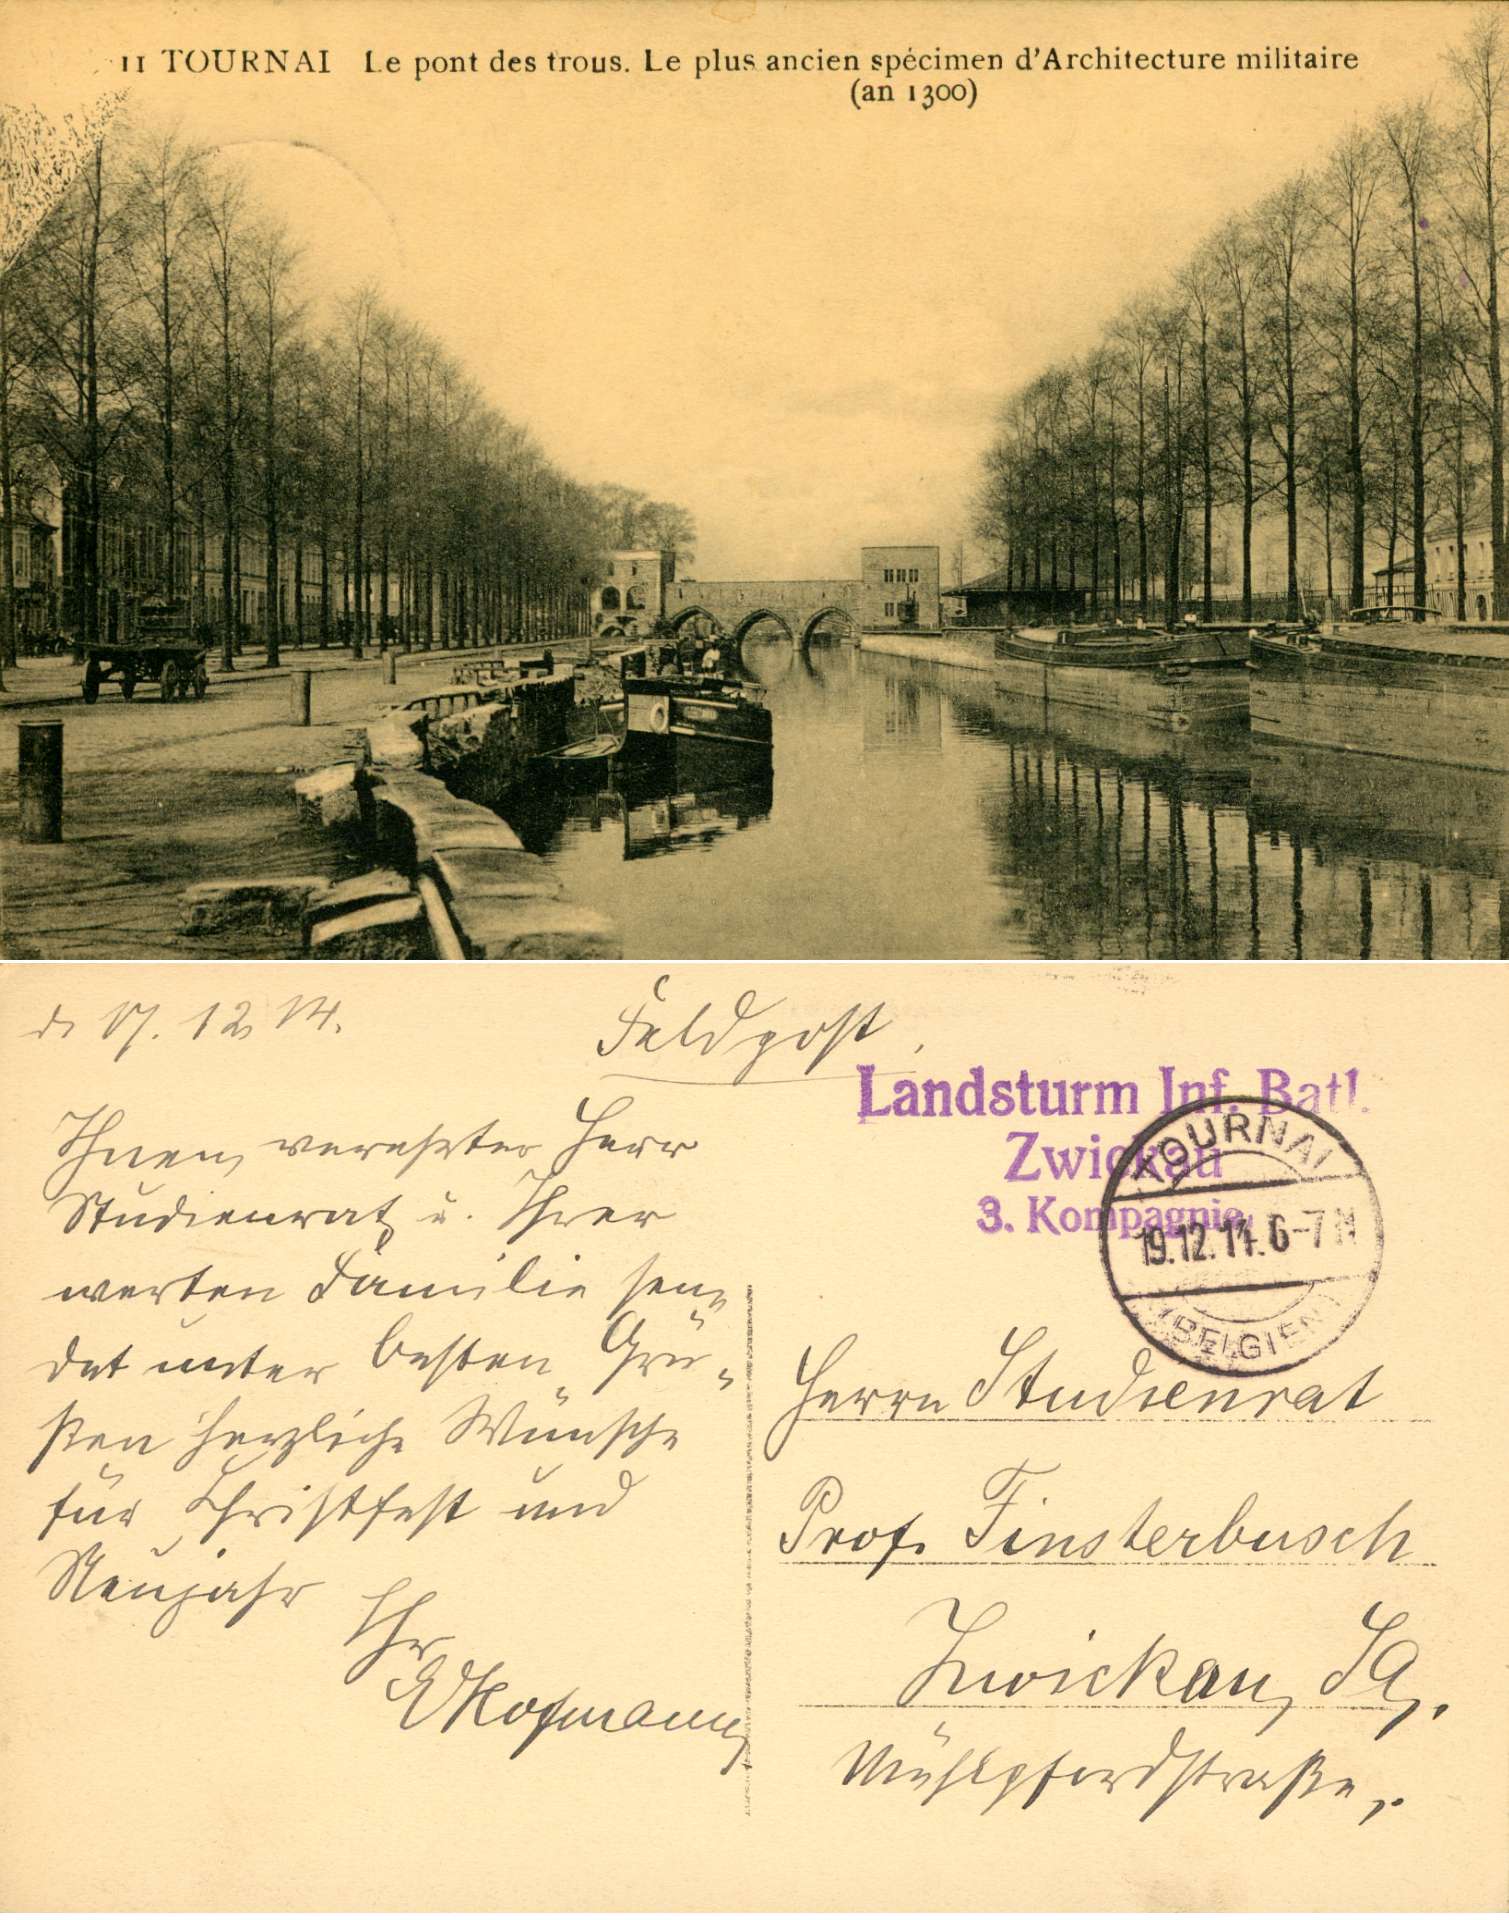 11 TOURNAI Le pont des trous. Le plus ancien spécimen d'Architecture militaire
(an 1300)
d. 17. 12. 14.
Feldpost.
Landsturm Inf. Batl.
Zwickau
3. Kompagnie.
TOURNAI
19.12.14. 6-7 N
(BELGIEN)
Ihnen, verehrter Herr
Studienrat, u. Ihrer
werten Familie sen-
det unter besten Grü-
ßen herzliche Wünsche
für Christfest und
Neujahr
Ihr
Hofmann
Herrn Studienrat
Prof. Finsterbusch
Zwickau, Sa.
Mühlpfordtstraße.